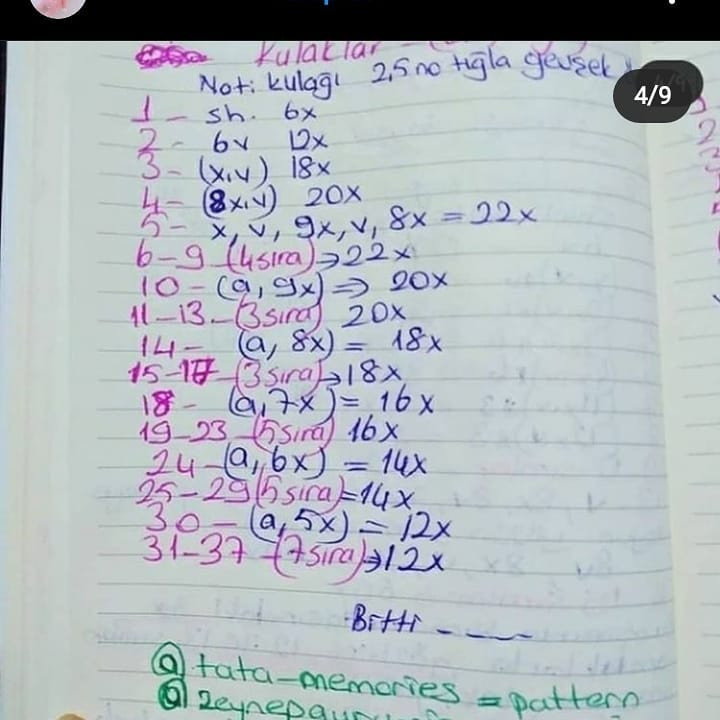 Kulaklar
Not: kulağı 2,5 no tığla gevşek
4/9
1 - sh. 6x
2 - 6v 12x
3 - (x,v) 18x
4 - (8x,v) 20x
5 - x, v, 9x, v, 8x = 22x
6-9 (4 sıra) → 22x
10 - (a, 9x) ⇒ 20x
11-13 - (3 sıra) 20x
14 - (a, 8x) = 18x
15-17 - (3 sıra) → 18x
18 - (a, 7x) = 16x
19-23 - (5 sıra) 16x
24 - (a, 6x) = 14x
25-29 (5 sıra) = 14x
30 - (a, 5x) = 12x
31-37 - (7 sıra) → 12x
Bitti - - —
@ tata-memories = pattern